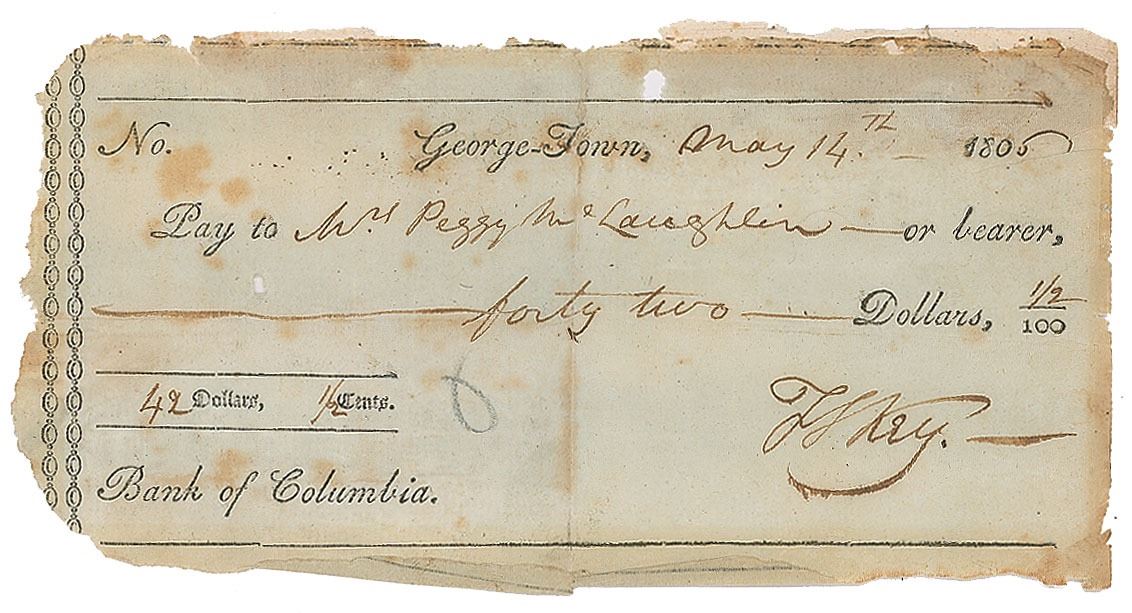 No. George-Town, May 14.TH
Pay to Mrs Peggy McLaughlin or bearer,
forty two Dollars, 1/2/100
42 Dollars, 1/2 Cents.
F S Key.
Bank of Columbia.